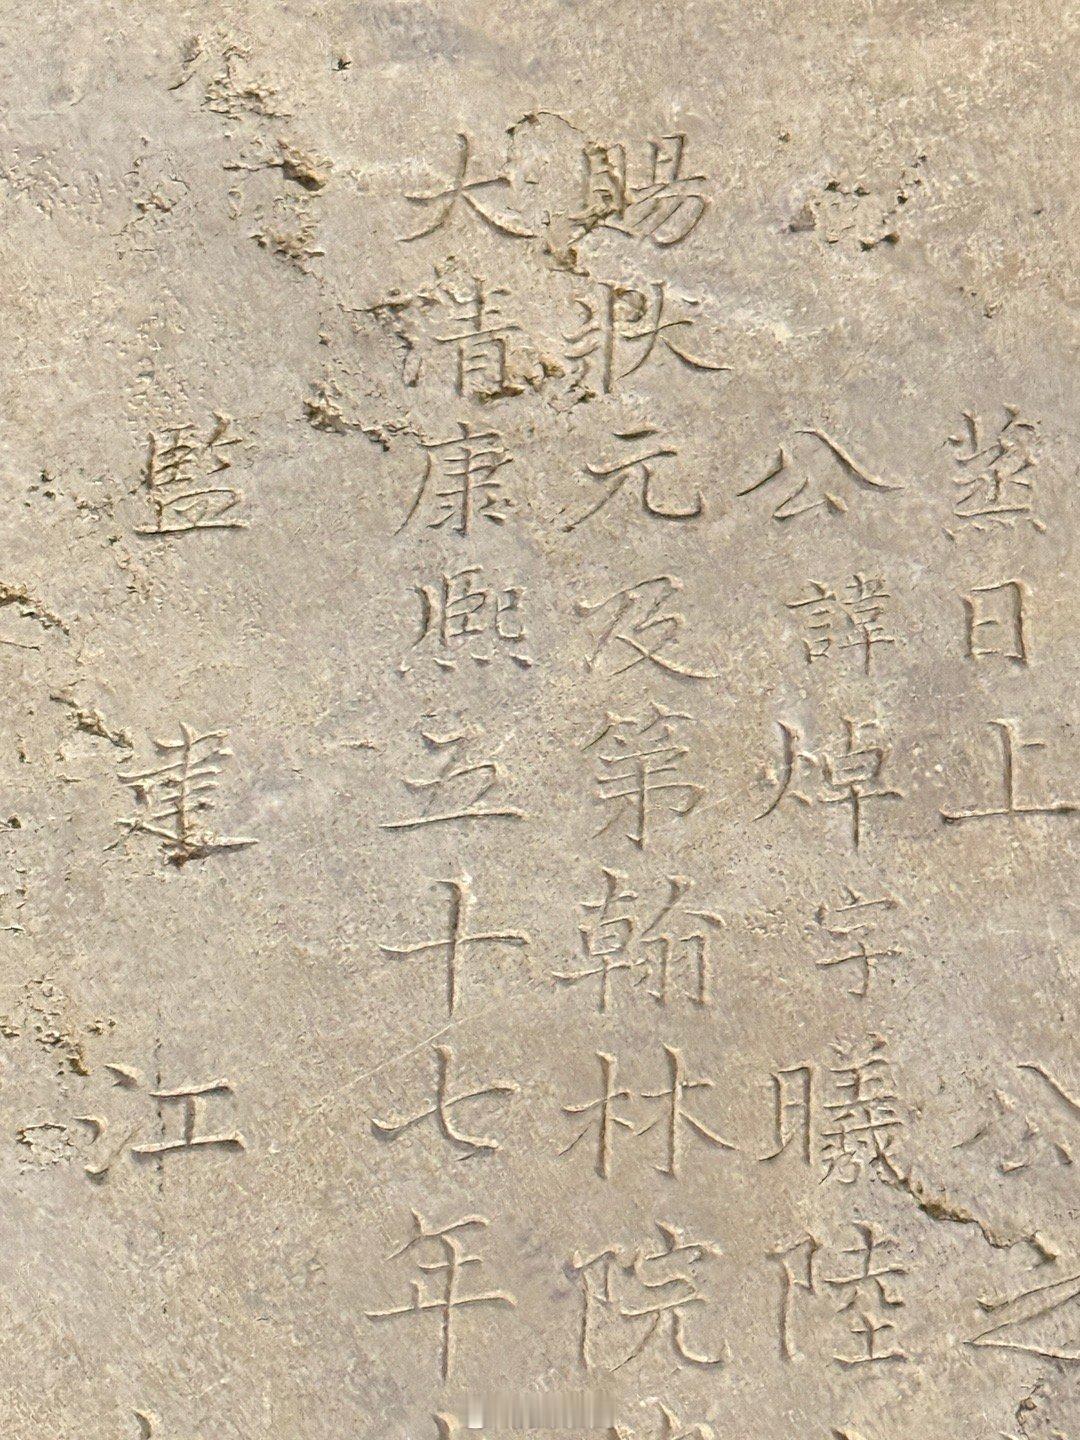 蒸日上 公之
公諱焯字曦陸
賜狀元及第翰林院
大清康熙五十七年
監 建 江